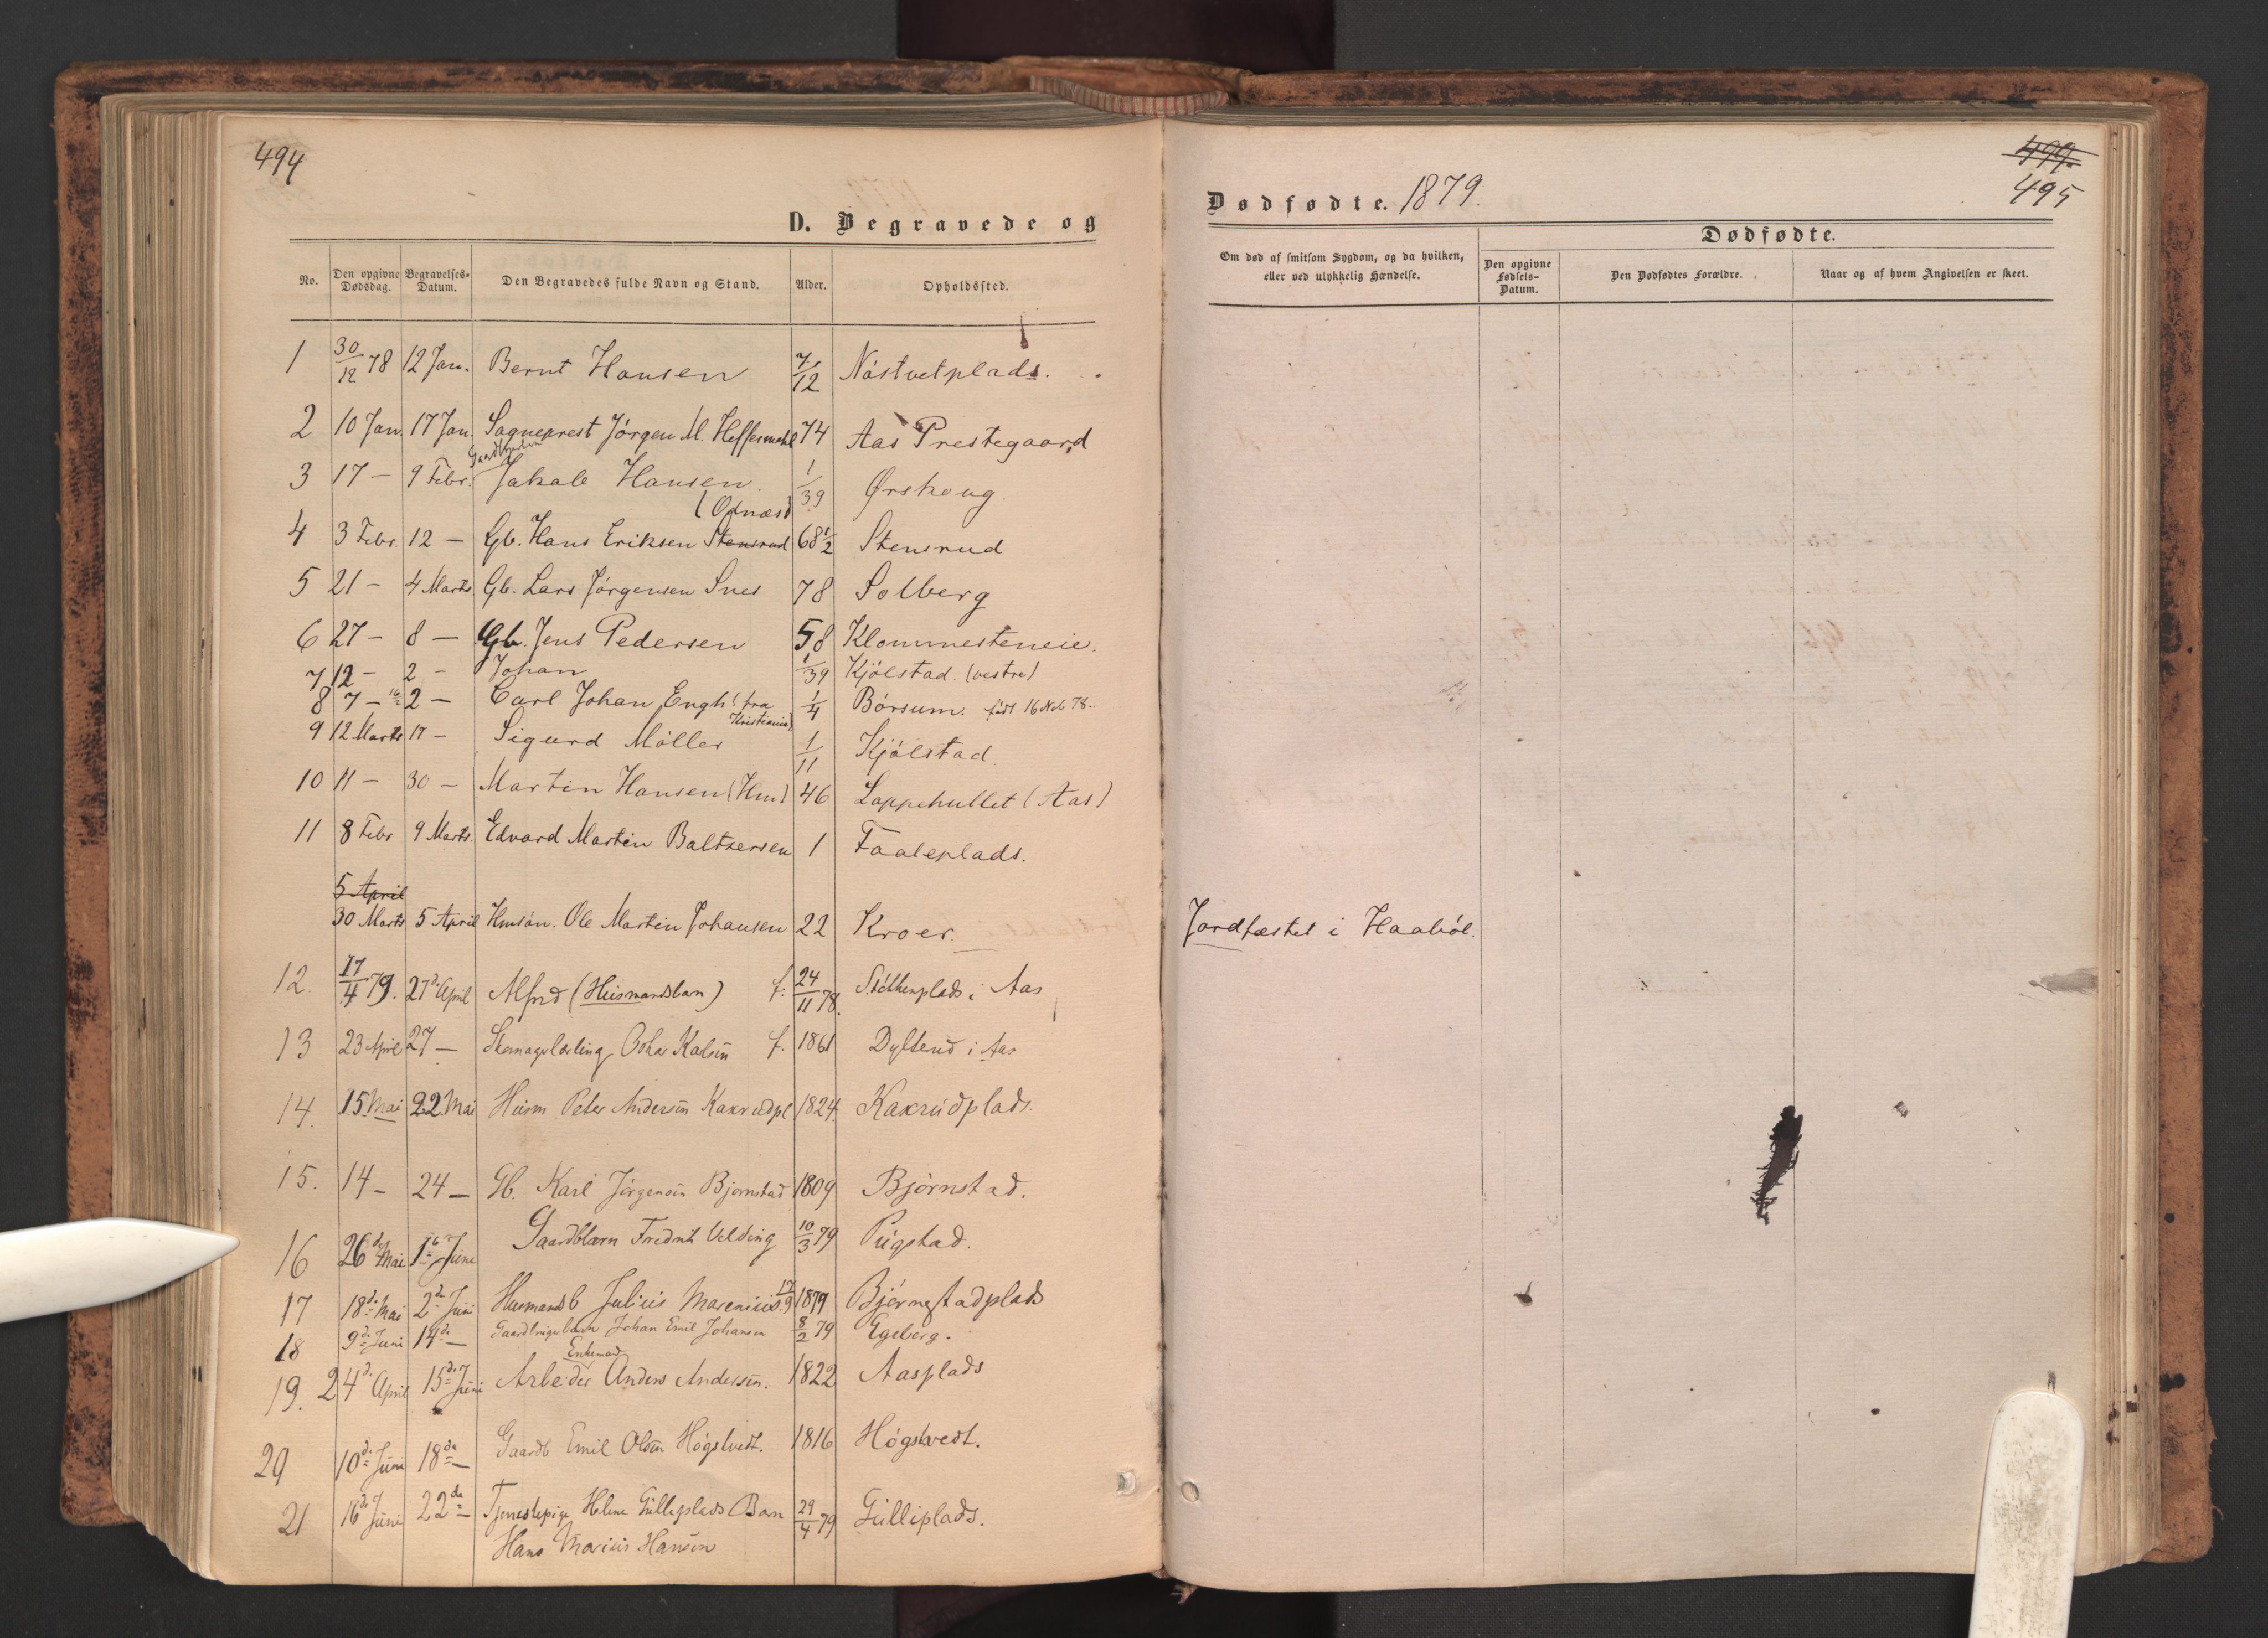 494
D. Begravede og
No. Den opgivne Dødsdag. Begravelses-Datum. Den Begravedes fulde Navn og Stand. Alder. Opholdssted.
1 30/12 78 12 Jan. Bernt Hansen 7/12 Nästvetplads.
2 10 Jan. 17 Jan. Sogneprest Jörgen M. Heffermehl 74 Aas Prestegaard
3 17 – 9 Febr. Jakale Hansen 1/39 Ørskoug
(Ofnæs)
4 3 Febr. 12 – Gb. Hans Eriksen Stensrud 68 1/2 Stensrud
5 21 – 4 Marts Gb. Lars Jörgensen Snes 78 Solberg
6 27 – 8 – Gb. Jens Pedersen 58 Klommesteneie.
7 12 – 2 – Johan 1/39 Kjölstad. (vestre)
8 7 – 2 – Carl Johan Engh (fra Kristiania) 1/4 Börsum. födt 16 Nov 78.
9 12 Marts 17 – Sigurd Möller 1/11 Kjölstad.
10 11 – 30 – Martin Hansen (Hm) 46 Loppehullet (Aas)
11 8 Febr 9 Marts Edvard Martin Baltzersen 1 Faaleplads.
5 April
30 Marts 5 April Hmsön. Ole Martin Johansen 22 Kroer.
12. 17/4 79. 27de April Alfred (Husmandsbarn) f. 24/11 78. Stökkenplads i Aas
13 23 April 27 – Skomagerlærling Oskar Karlsen f. 1861 Dysterud i Aas
14. 15 Mai 22 Mai Husm Peter Andersen Kaxrudpl 1824 Kaxrudplads.
15. 14 – 24 – Gb. Karl Jörgensen Bjørnstad 1809 Bjørnstad.
16 26de Mai 1ste Juni Gaardbarn Fredrik Velding 10/3 79 Pugstad.
17 18de Mai 2de Juni Husmandsb Julius Marenius 17/9 1879 Bjørnestadplads
18 9de Juni 14de – Gaardbrugerbarn Johan Emil Johansen 8/2 79 Egeberg.
Enkemand
19. 24de April 15de Juni Arbeider Anders Andersen. 1822 Aasplads
20 10de Juni 18de – Gaardb Emil Olsen Høgstvedt. 1816 Høgstvedt.
21 16de Juni 22de – Tjenestepige Helene Gulliplads Barn 29/4 79 Gulliplads.
Hans Marius Hansen
499.
495
Dødfødte. 1879.
Dødfødte.
Om død af smitsom Sygdom, og da hvilken, eller ved ulykkelig Hændelse. Den opgivne Fødsels-Datum. Den Dødfødtes Forældre. Naar og af hvem Angivelsen er skeet.
Jordfæstet i Haaböl.